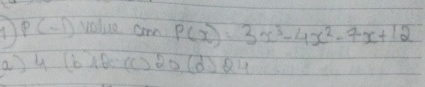 1) P(-1) value Com P(x) = 3x³-4x²-7x+12
a) 4 (b) 12 (c) 20 (d) 24